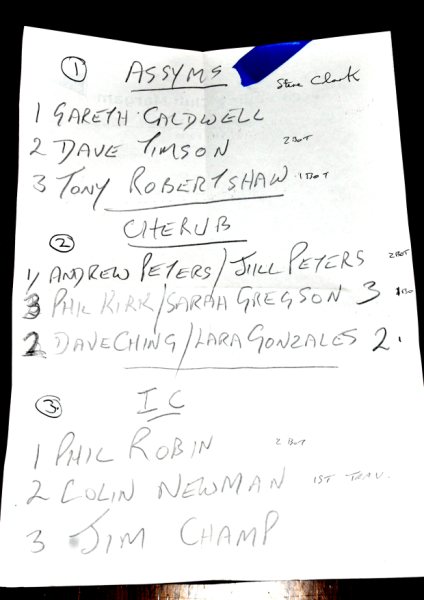 1 ASSYMS Steve Clark
1 GARETH CALDWELL
2 DAVE TIMSON 2 BOT
3 TONY ROBERTSHAW 1 BOT
CHERUB
2
1, ANDREW PETERS/JILL PETERS 2 BOT
3 PHIL KIRK/SARAH GREGSON 3
2 DAVE CHING/LARA GONZALES 2.
3. IC
1 PHIL ROBIN 2 BOT
2 COLIN NEWMAN 1ST TRAV.
3 JIM CHAMP